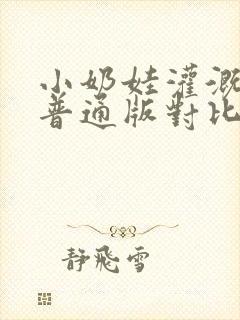 小奶娃灌溉
普通版對比
靜飛雪